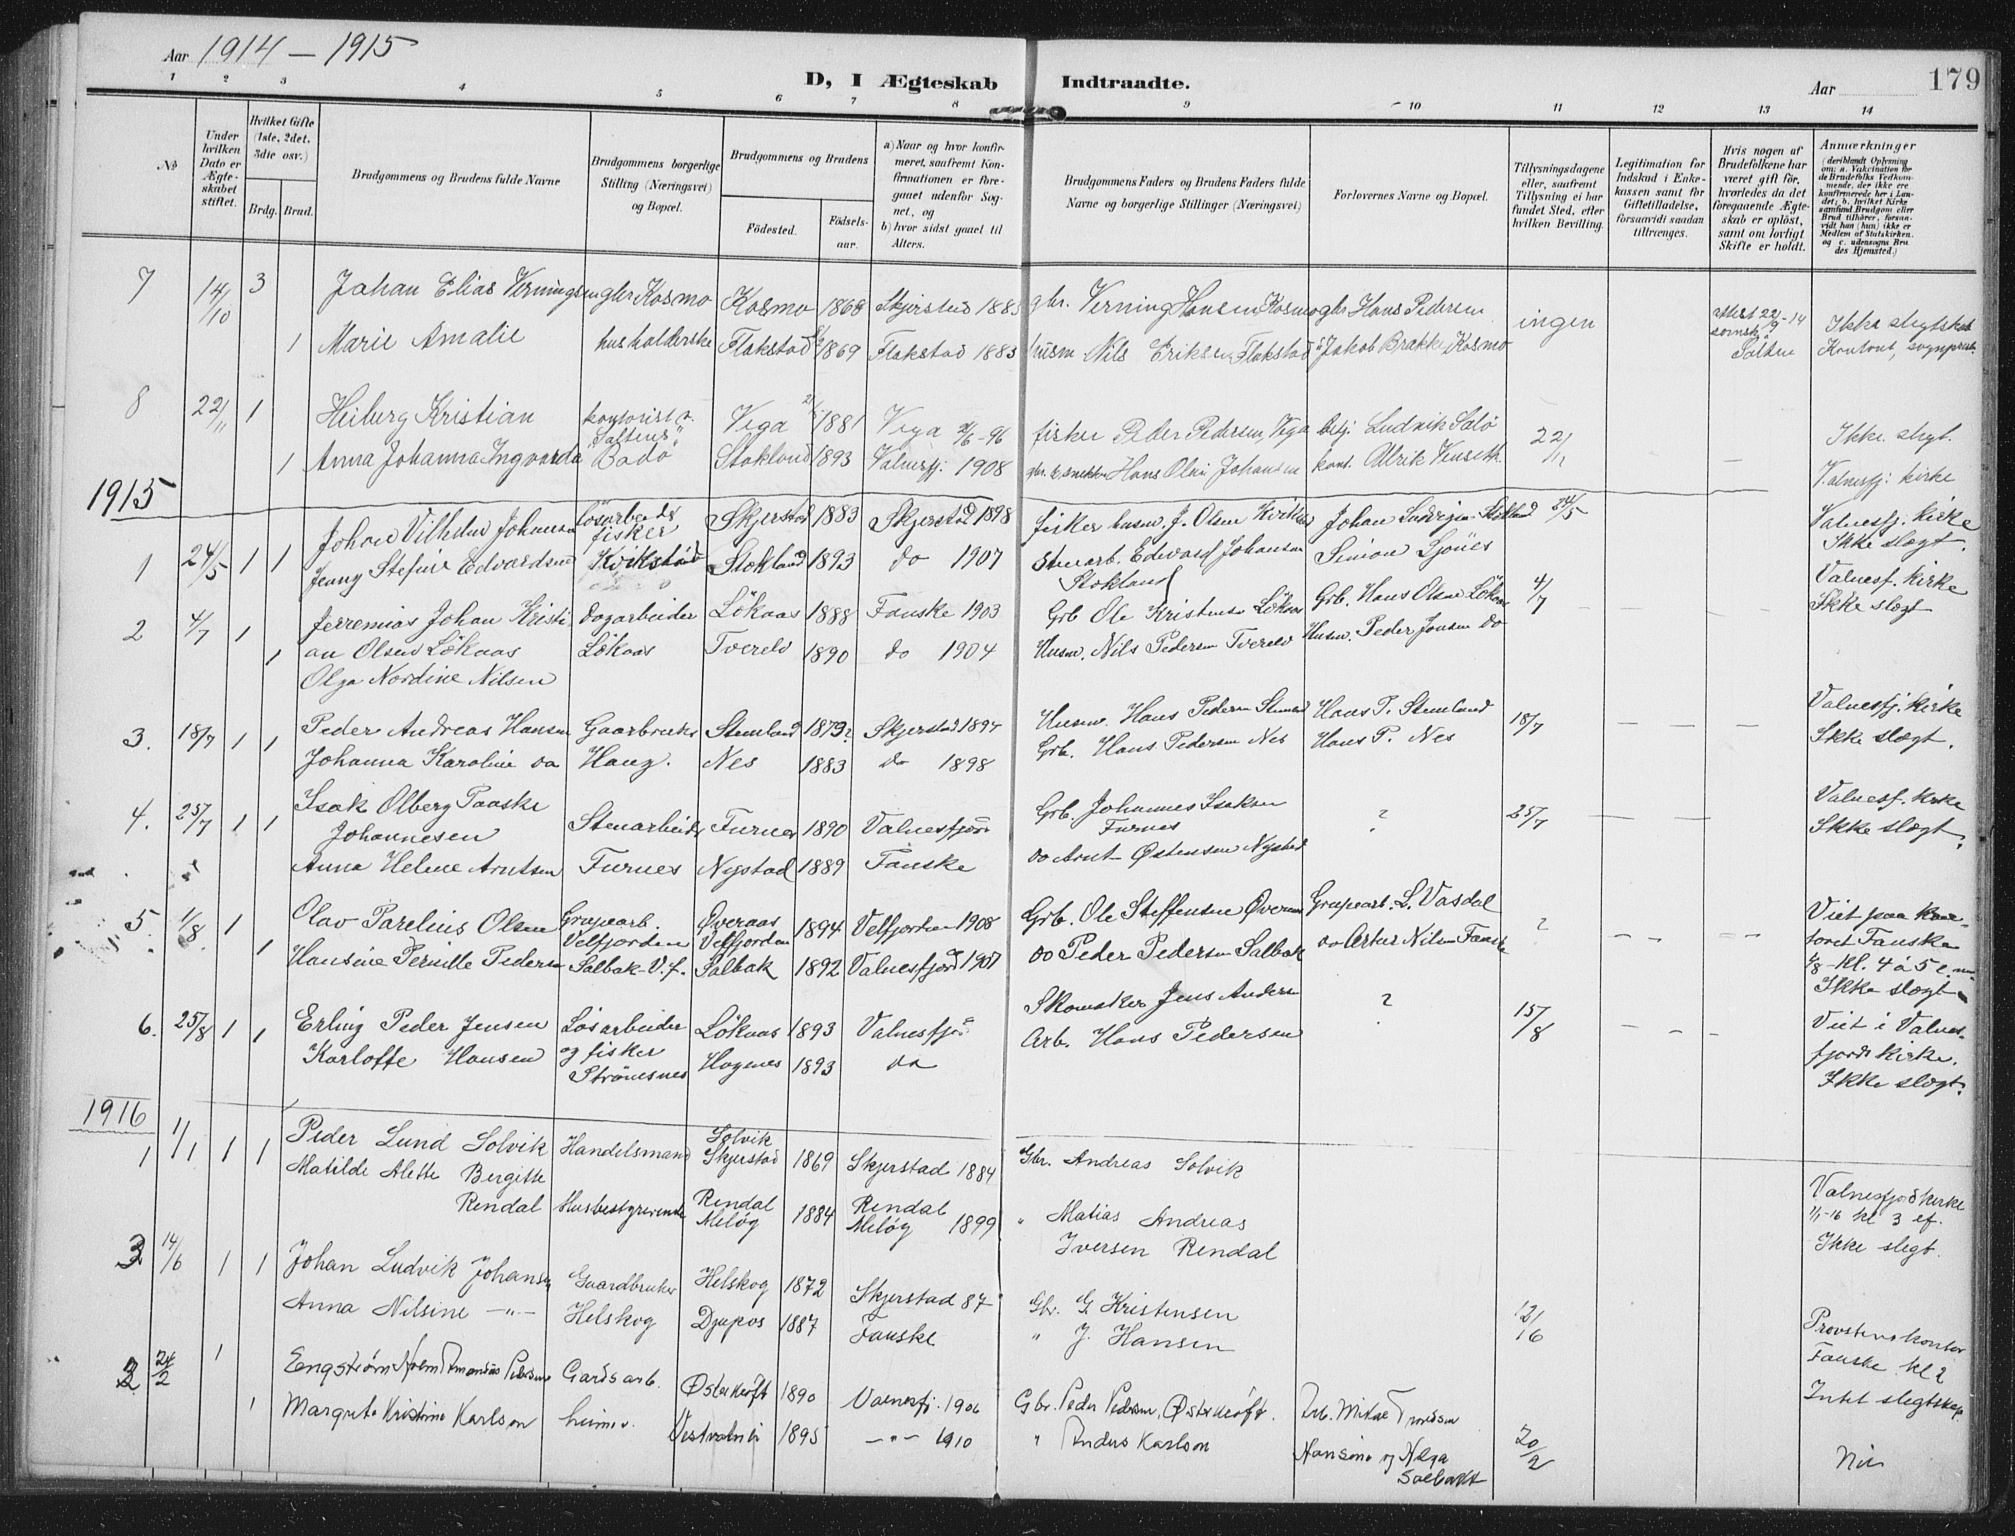 Aar 1914 – 1915
D, I Ægteskab Indtraadte.
Aar
179
1 2 3 4 5 6 7 8 9 10 11 12 13 14
No
Under hvilken Dato er Ægteskabet stiftet.
Hvilket Gifte (1ste, 2det, 3die osv.)
Brdg. Brud.
Brudgommens og Brudens fulde Navne
Brudgommens borgerlige Stilling (Næringsvei) og Bopæl.
Brudgommens og Brudens
Födested.
Födselsaar.
a) Naar og hvor konfirmeret, saafremt Konfirmationen er foregaaet udenfor Sognet, og
b) hvor sidst gaaet til Alters.
Brudgommens Faders og Brudens Faders fulde Navne og borgerlige Stillinger (Næringsvei)
Forlovernes Navne og Bopæl.
Tillysningsdagene eller, saafremt Tillysning ei har fundet Sted, efter hvilken Bevilling.
Legitimation for Indskud i Enkekassen samt för Giftetilladelse, forsaavidt saadan tiltrænges.
Hvis nogen af Brudefolkene har været gift för, hvorledes da det foregaaende Ægteskab er oplöst, samt om lovligt Skifte er holdt.
Anmærkninger
(deriblandt Oplysning om: a. Vaccination for de Brudefolks Vedkommende, der ikke ere konfirmerede her i Landet; b. hvilket Kirkesamfund Brudgom eller Brud tilhörer, forsaavidt han (hun) ikke er Medlem af Statskirken, og c. udensogns Brudes Hjemsted.)
7 14/10 3 Johan Elias Verningsen gbr Kosmo Kosmo 1868 Skjerstad 1883 gbr. Verning Hansen Kosmo gbr Hans Pedersen ingen
1 Marie Amalie husholderske Flakstad 1869 Flakstad 1883 husm Nils Eriksen Flakstad Jakob Brakke Kosmo Salten
Ikke slegtskab
8 22/11 1 Heiberg Kristian kontorist Vega 1881 Vega 21/6-96 fisker Peder Pedersen Vega Ludvik Salö 22/11 Ikke slegt.
1 Anna Johanna Ingvarda Bodö Stokland 1893 Valnesfj. 1908 Hans Olai Johansen kont. Valnesfj: kirke
1915
1 24/5 1 1 Johan Vilhelm Johansen Lösarbeider fisker Skjerstad 1883 Skjerstad 1898 fisker husm. J. Olsen Johan Ludvigsen Stokland 24/5 Valnesfj. Kirke
Jenny Stefine Edvardsen Kvikstad Stokland 1893 do 1907 Stenarb. Edvard Johansen Stokland Simon Ikke slægt.
2 4/7 1 Jerremias Johan Kristian Olsen Lökaas Dagarbeider Lökaas Lökaas 1888 Fauske 1903 Grb Ole Kristensen Lökaas Grb. Hans Olsen Lökaas 4/7 Valnesf. Kirke
1 Olga Nordine Nilsen Tverelv 1890 do 1904 Husm. Nils Pedersen Tverelv Husm. Peder Jensen do Ikke slægt
3. 18/7 1 1 Peder Andreas Hansen Gaarbruker Stemland 1873? Skjerstad 1894 Husm. Hans Pedersen Stemland Hans P. Stemland 18/7 — — Valnesfj. Kirke
Johanna Karoline do Haug. Nes 1883 do 1898 Grb. Hans Pedersen Nes Hans P. Nes Ikke slægt.
4. 25/7 1 1 Isak Olberg Paaske Johannesen Stenarbeider Furnes 1890 Valnesfjord Grb. Johannes Isaksen Furnes ? 25/7 — — Valnesf. Kirke
Anna Helene Arntsen Furnes Nystad 1889 Fauske do Arnt Østensen Nystad Ikke slægt.
5. 1/8 1 Olav Parelius Olsen Grupearb. Velfjorden Øveraas Velfjorden 1894 Velfjorden 1908 Grb. Ole Steffensen Øveraas Grupearb. L. Vasdal ? Viet paa Kontoret Fauske
1 Hansine Pernille Pedersen Salbak V.f. Salbak 1892 Valnesfjord 1907 do Peder Pedersen Salbak do Artur Nilsen Fauske 1/8 – kl. 4 à 5 e.m. Ikke slægt
6. 25/8 1 1 Erling Peder Jensen Lösarbeider og fisker Lökaas 1893 Valnesfjord Skomaker Jens Andersen ? 15/8 Viet i Valnesfjords Kirke.
Karloffe Hansen Strömsnes Hagnes 1893 do Arb. Hans Pedersen Ikke slægt.
1916
1 1/1 1 1 Peder Lund Solvik Handelsmand Solvik Skjerstad 1869 Skjerstad 1884 Gbr. Andreas Solvik
Matilde Alette Bergitte Rendal Husbestyrerinde Rendal Meløy 1884 Rendal Meløy 1899 " Matias Andreas Iversen Rendal Valnesfjord kirke 1/1-16 kl 3 ef. Ikke slegt.
3 14/6 1 1 Johan Ludvik Johansen Gaardbruker Helskog 1872 Skjerstad 87 Gbr. G. Kristensen
Anna Nilsine —"— Helskog Djupos 1887 Fauske " J. Hansen Provstens kontor Fauske kl 2
2 1 Engstrøm Pedersen Gardsarb. Østerkløft 1890 Valnesfj. 1906 Gbr. Peder Pedersen, Østerkløft. Intet slegtskap
1 Margrete Kristine Karlson 1895 —"— 1910 " Anders Karlson Hansine og Helga Solbakk 20/2